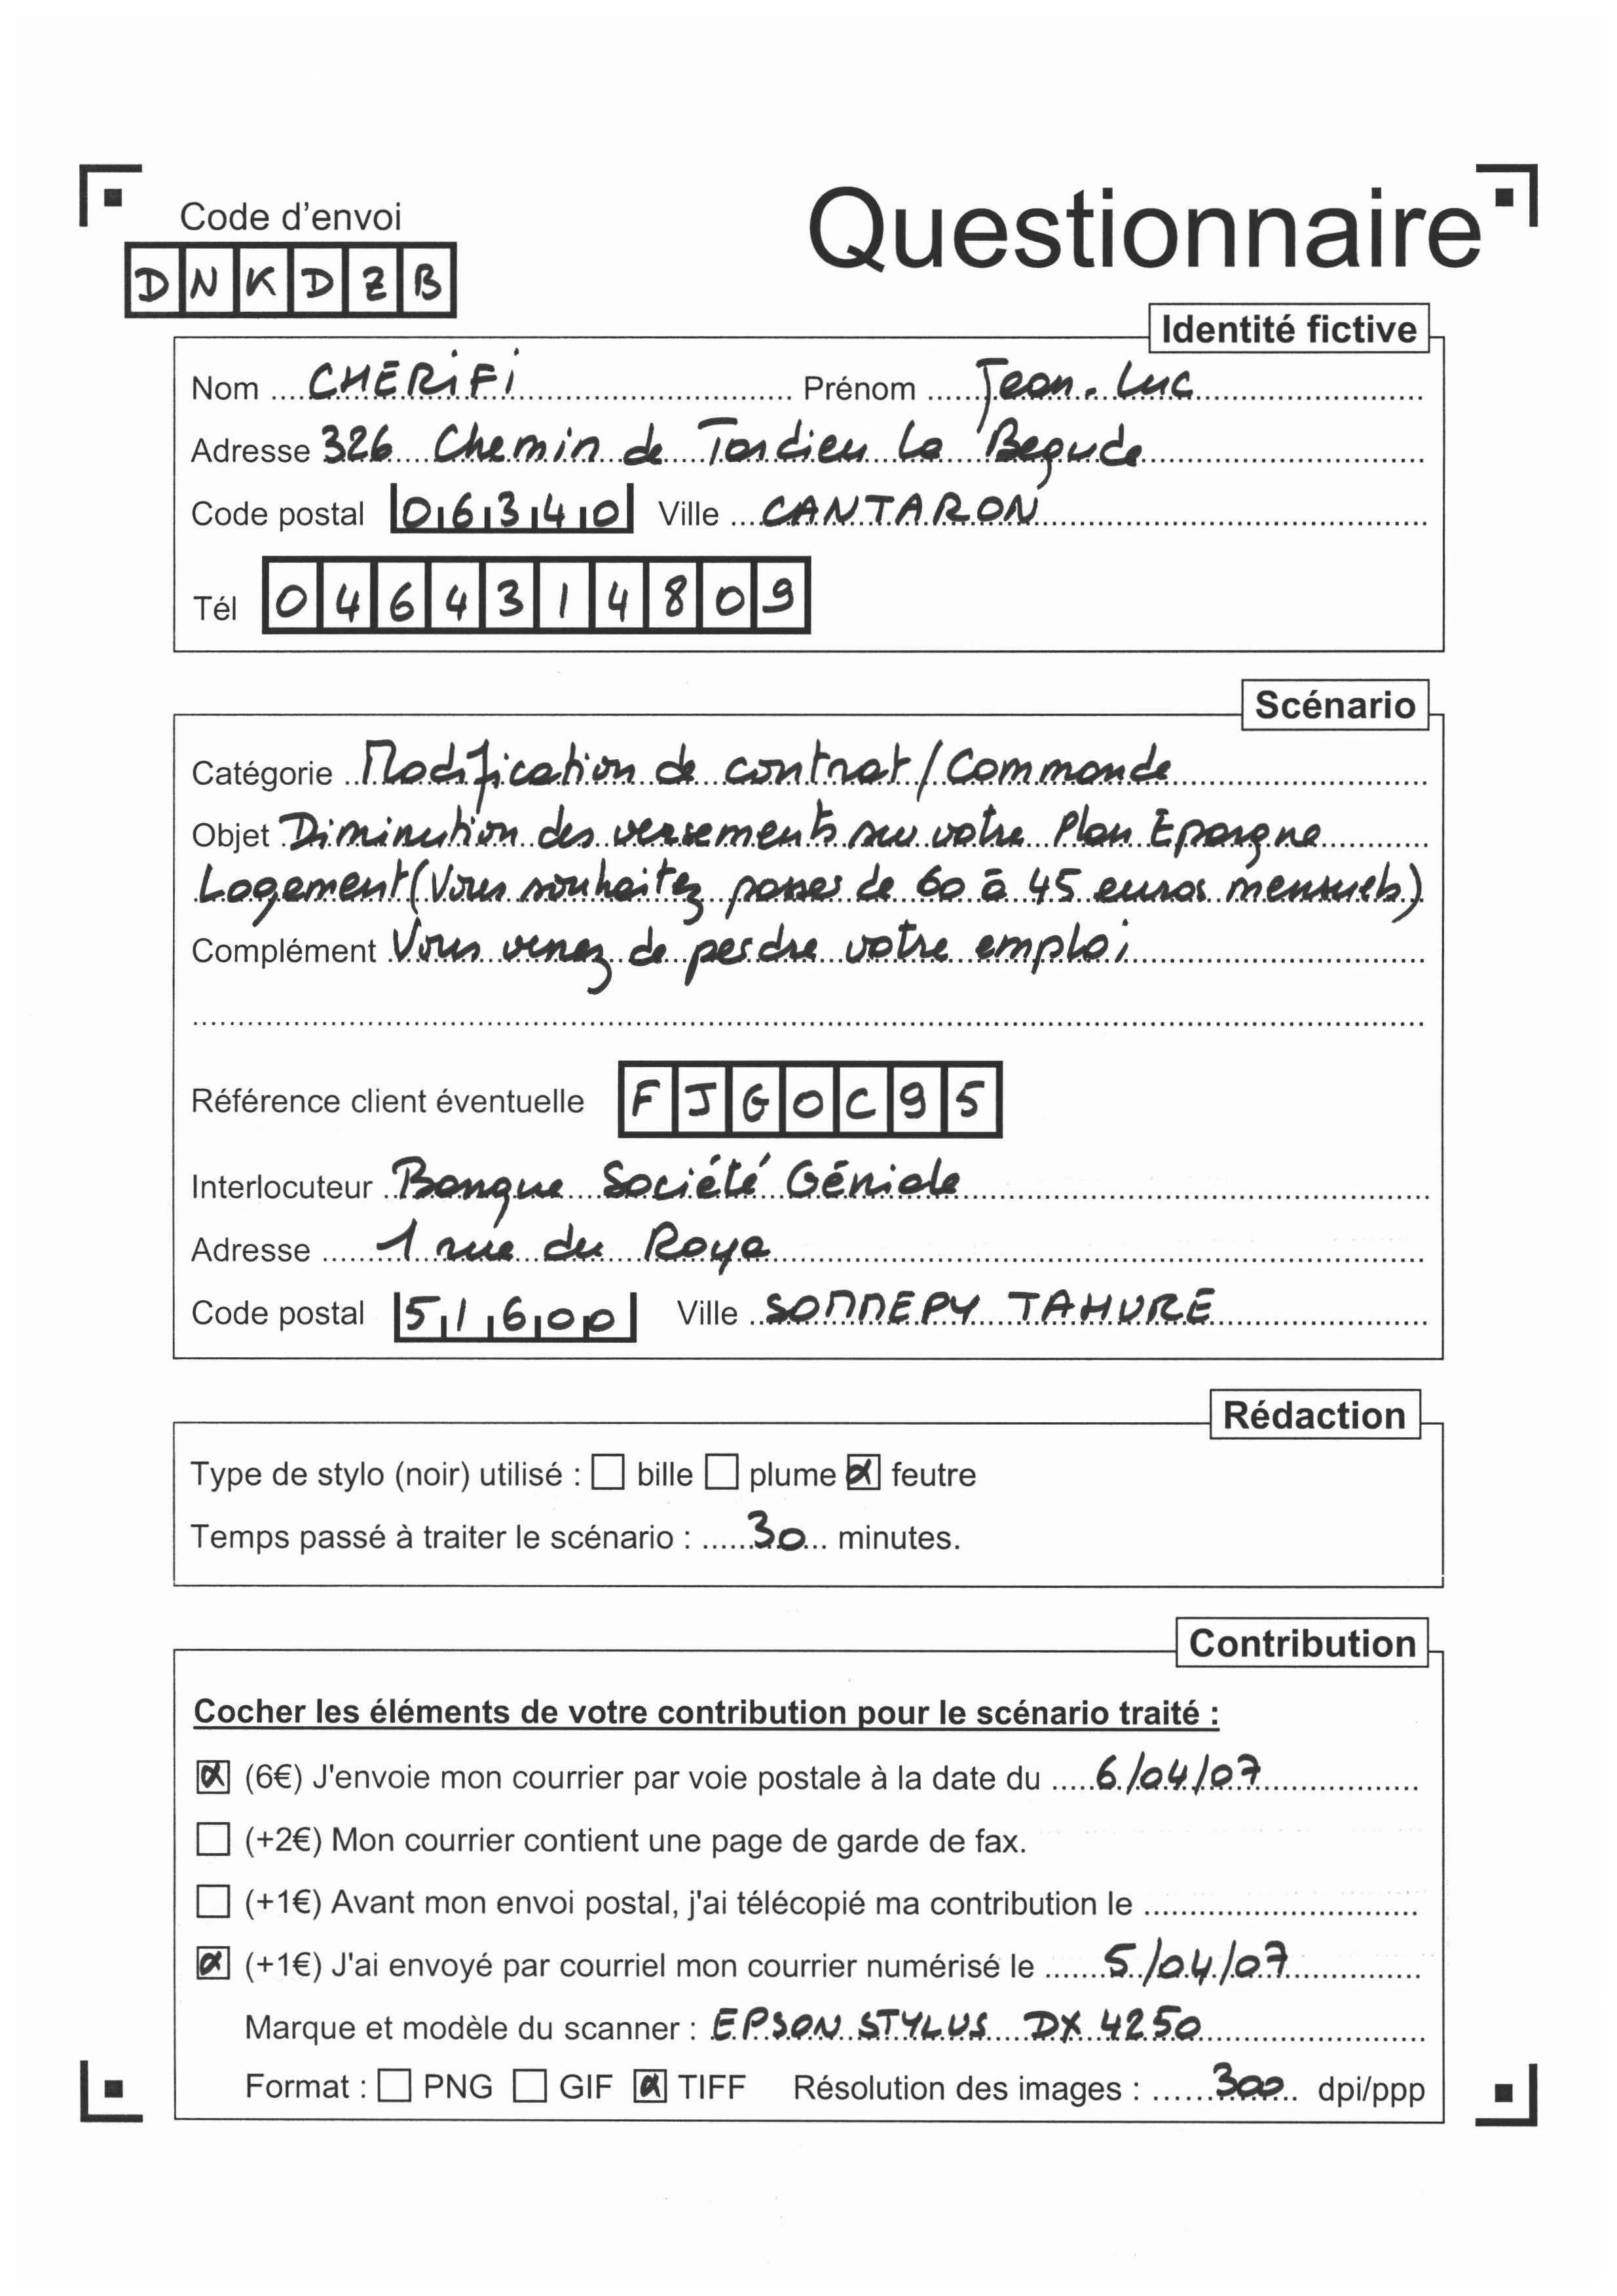 Code d'envoi
Questionnaire
DNKDZB
Identité fictive
Nom CHERiFi Prénom Jean-Luc
Adresse 326 Chemin de Tardieu La Begude
Code postal 06340 Ville CANTARON
Tél 0464314809
Scénario
Catégorie Modification de contrat/Commande
Objet Diminution des versements sur votre Plan Epargne
Logement (Vous souhaitez passer de 60 à 45 euros mensuels)
Complément Vous venez de perdre votre emploi
Référence client éventuelle FJGOC95
Interlocuteur Banque Société Géniale
Adresse 1 rue du Roya
Code postal 51600 Ville SOMMEPY TAHURE
Rédaction
Type de stylo (noir) utilisé : bille plume feutre
Temps passé à traiter le scénario : 30 minutes.
Contribution
Cocher les éléments de votre contribution pour le scénario traité :
(6€) J'envoie mon courrier par voie postale à la date du 6/04/07
(+2€) Mon courrier contient une page de garde de fax.
(+1€) Avant mon envoi postal, j'ai télécopié ma contribution le
(+1€) J'ai envoyé par courriel mon courrier numérisé le 5/04/07
Marque et modèle du scanner : EPSON STYLUS DX 4250
Format : PNG GIF TIFF Résolution des images : 300 dpi/ppp